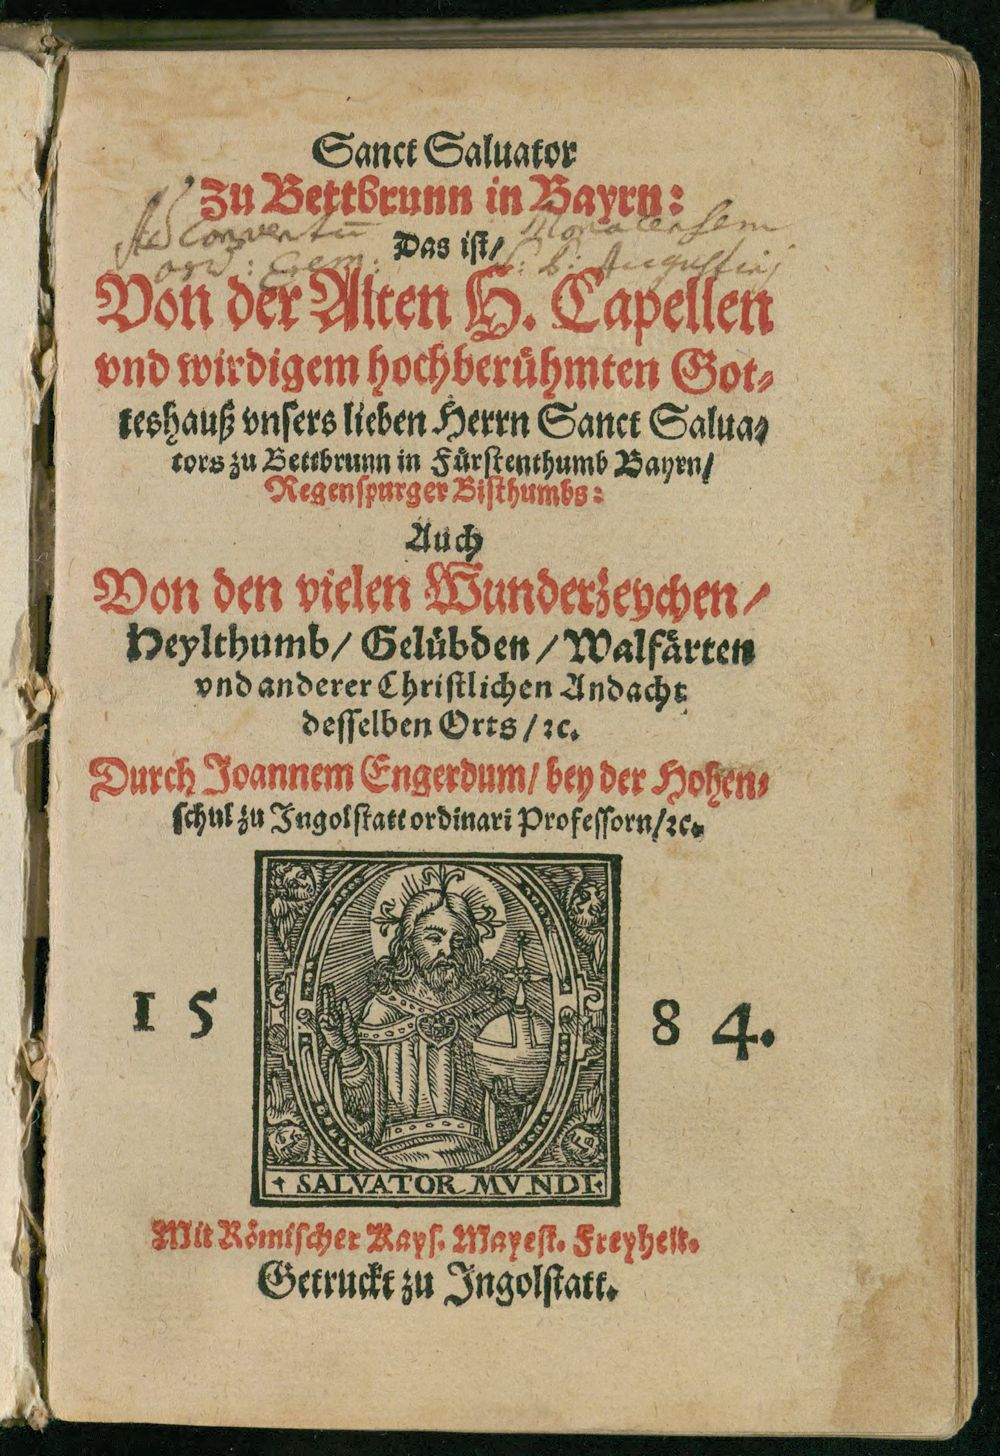 Sanct Saluator
Zu Bettbrunn in Bayrn:
Ad Conventū Monacensem
Das ist/
ord: Erem: S: P: Augustinj
Von der Alten H. Capellen
vnd wirdigem hochberühmten Got⸗
teshauß vnsers lieben Herrn Sanct Salua⸗
tors zu Bettbrunn in Fürstenthumb Bayrn/
Regenspurger Bisthumbs:
Auch
Von den vielen Wunderzeychen/
Heylthumb/ Gelübden/ Walfärten
vnd anderer Christlichen Andacht
desselben Orts/ ꝛc.
Durch Joannem Engerdum/ bey der Hohen⸗
schul zu Ingolstatt ordinari Professorn/ꝛc.
15 84.
SALVATOR MVNDI
Mit Römischer Kays. Mayest. Freyheit.
Getruckt zu Ingolstatt.